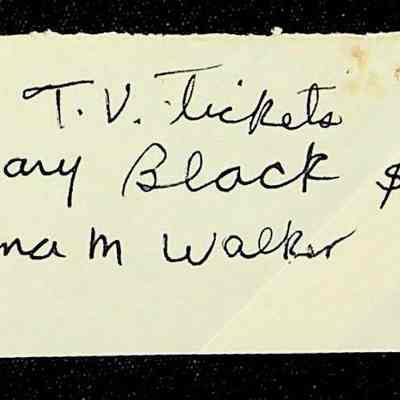 T.V. Tickets
ary Black $
ma M Walker